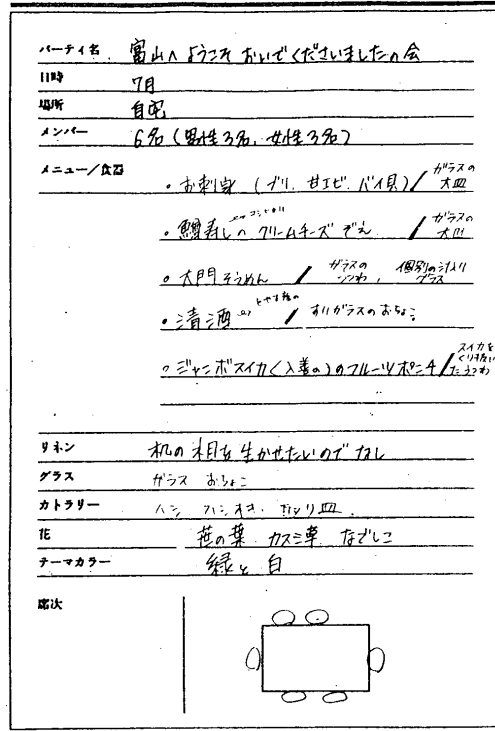 パーティ名 富山へようこそ おいでくださいましたの会
日時 7月
場所 自宅
メンバー 6名（男性3名、女性3名）
メニュー/食器
・お刺身（ブリ、甘エビ、バイ貝）/ガラスの大皿
・鱒寿しの クリームチーズ ぞえ /ガラスの大皿
・大門そうめん / ガラスのうつわ、個別の汁入りグラス
・清酒 / すりガラスのおちょこ
・ジャンボスイカ(入善の)のフルーツポンチ/スイカをくりぬいたうつわ
リネン 机の木目を生かせたいので なし
グラス ガラス おちょこ
カトラリー ハシ ハシオキ 皿
花 笹の葉 カスミ草 なでしこ
テーマカラー 緑と白
席次